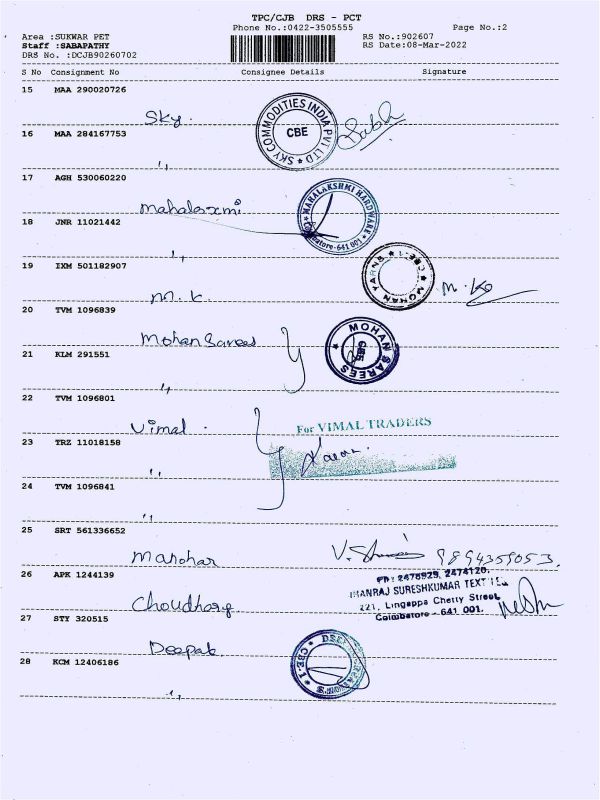 TPC/CJB DRS - PCT
Phone No.:0422-3505555 Page No.:2
Area :SUKWAR PET RS No.:902607
Staff :SABAPATHY RS Date:08-Mar-2022
DRS No. :DCJB90260702
S No Consignment No Consignee Details Signature
15 MAA 290020726
Sky.
SKY COMMODITIES INDIA PVT LTD
CBE
16 MAA 284167753
"
17 AGH 530060220
Mahalaxmi
MAHALAKSHMI HARDWARE
Coimbatore-641 001
18 JNR 11021442
"
19 IXM 501182907
M. K.
MOHAN YARNS
CBE-1
20 TVM 1096839
Mohan Sarees
MOHAN SAREES
21 KLM 291551
"
22 TVM 1096801
Vimal.
For VIMAL TRADERS
23 TRZ 11018158
"
24 TVM 1096841
"
25 SRT 561336652
Manohar
9894359053
26 APK 1244139
PH: 2476929, 2474120.
MANRAJ SURESHKUMAR
221, Lingappa Chetty Street,
Coimbatore - 641 001.
Choudhary
27 STY 320515
Deepak
CBE-1
28 KCM 12406186
"